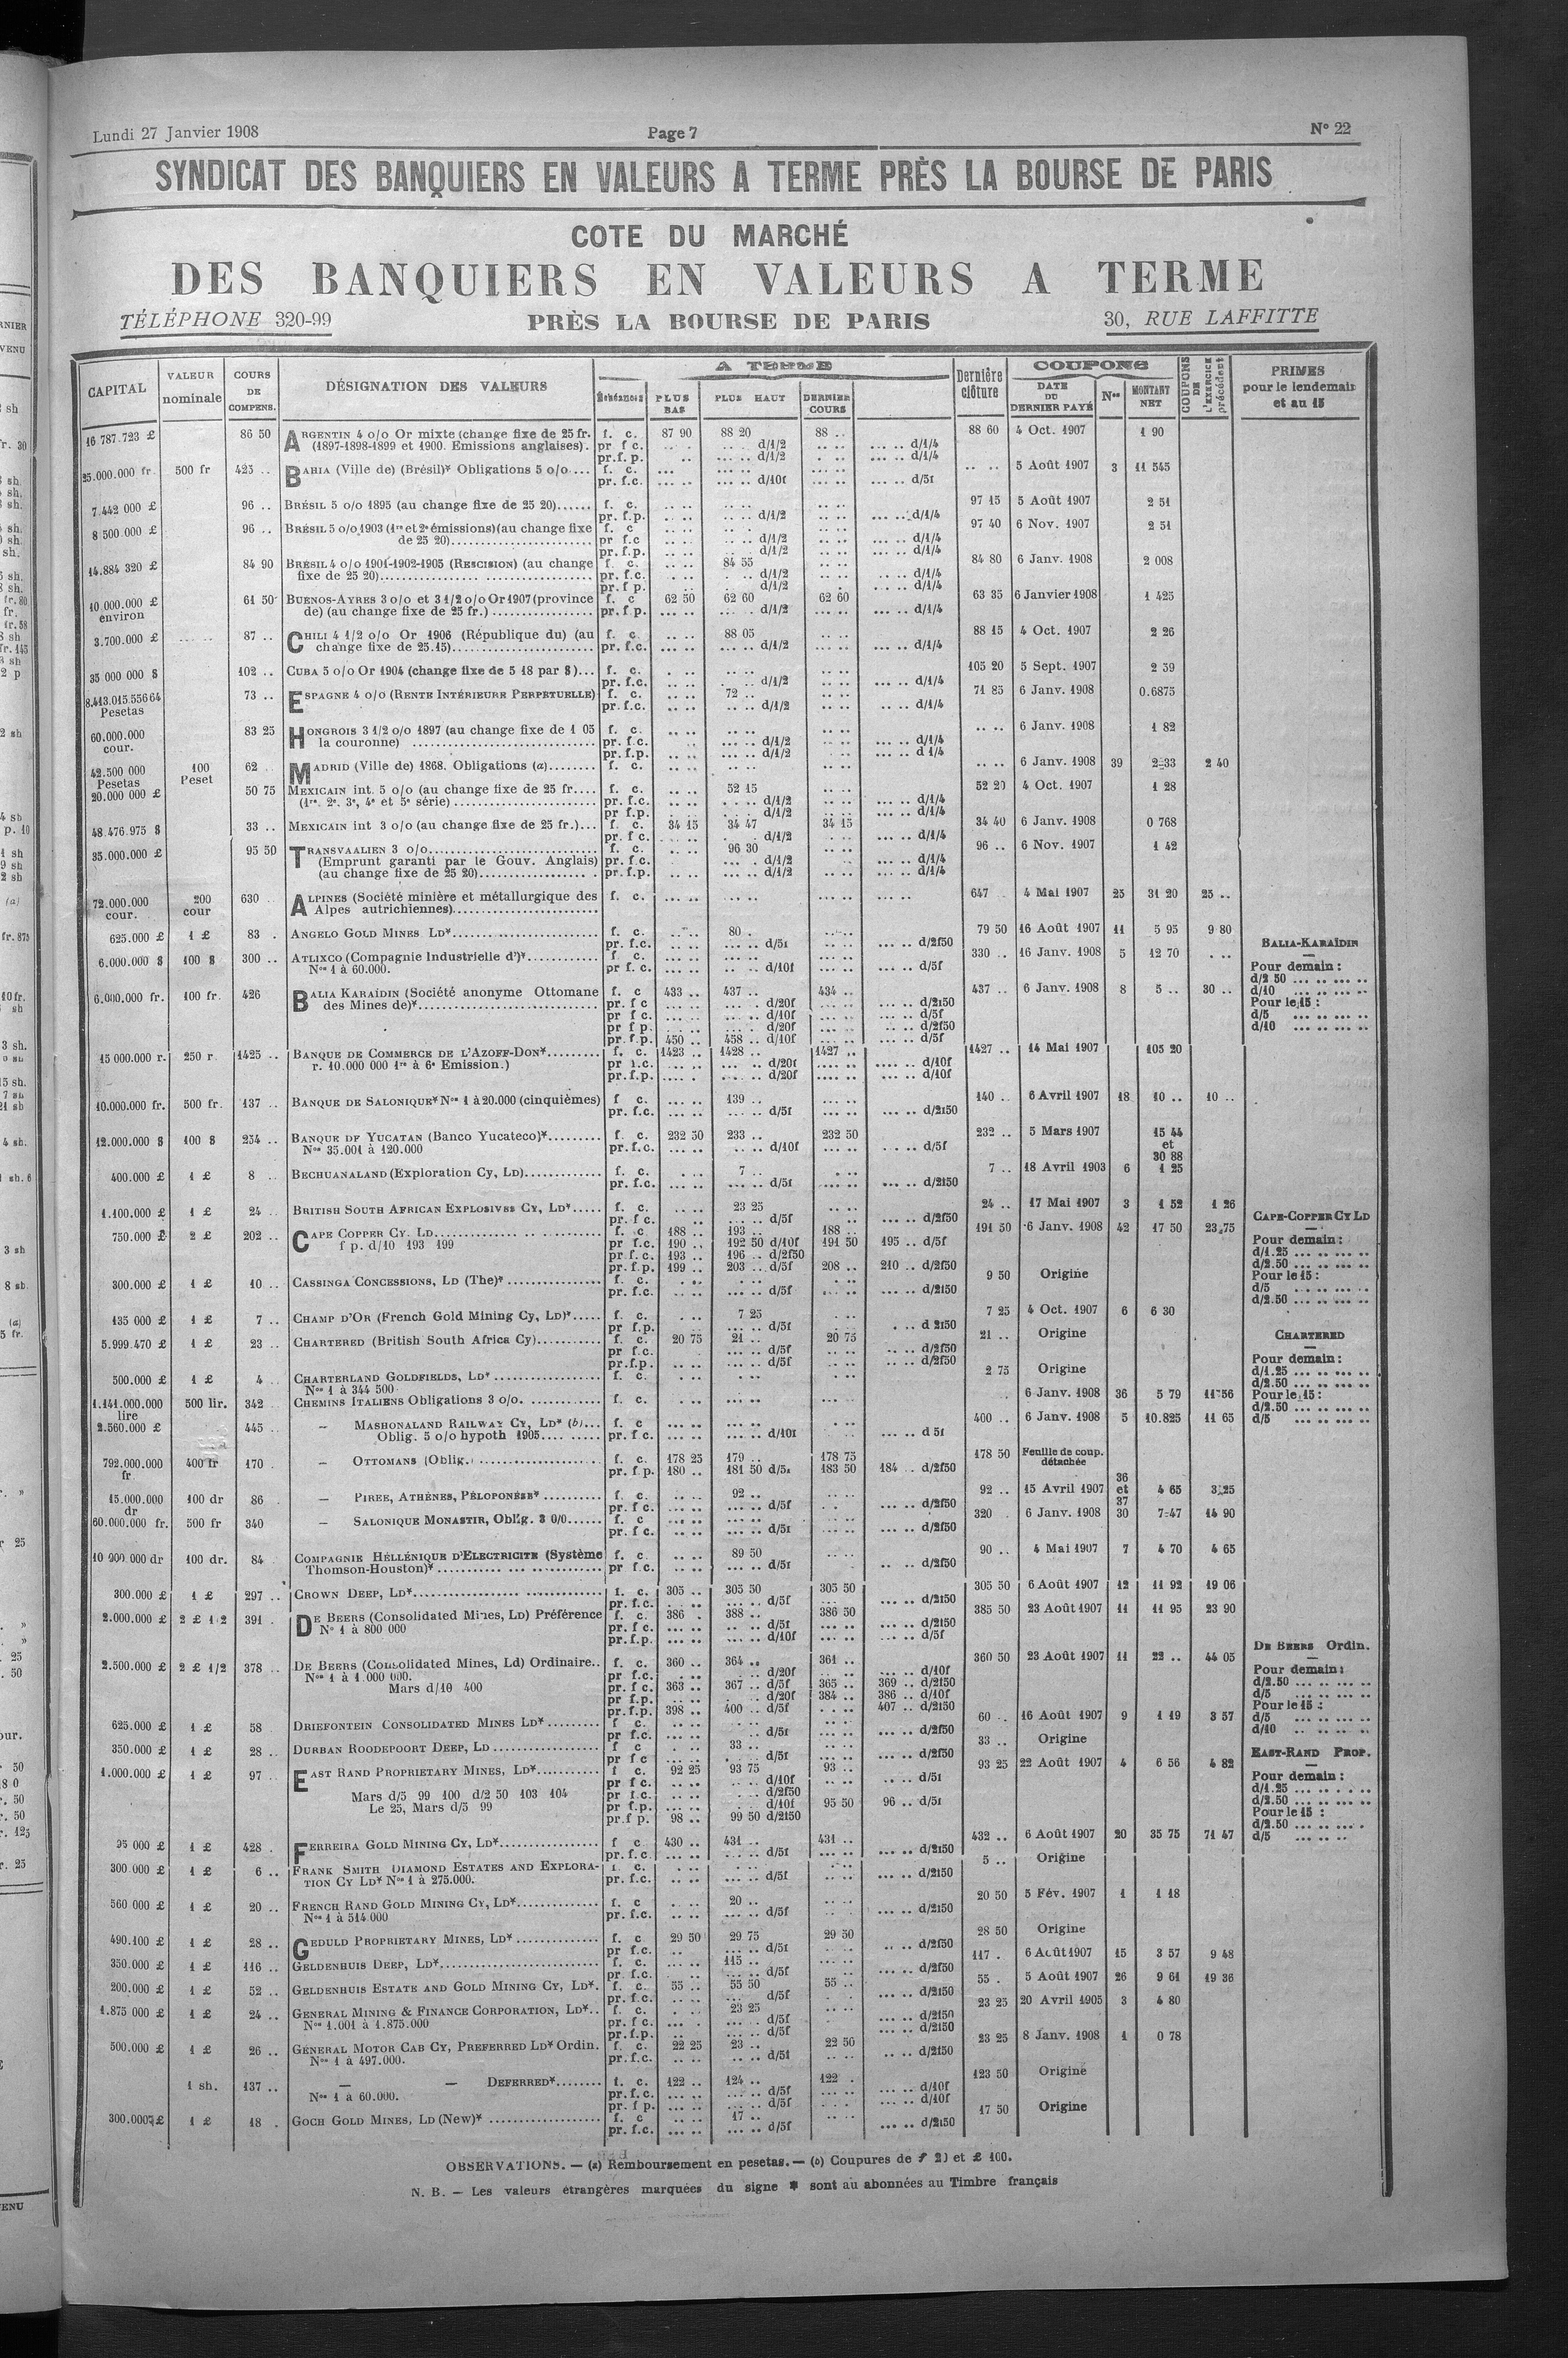 Lundi 27 Janvier 1908 Page 7 N° 22
SYNDICAT DES BANQUIERS EN VALEURS A TERME PRÈS LA BOURSE DE PARIS
COTE DU MARCHÉ
DES BANQUIERS EN VALEURS A TERME
TÉLÉPHONE 320-99 PRÈS LA BOURSE DE PARIS 30, RUE LAFFITTE
CAPITAL VALEUR nominale COURS DE COMPENS. DÉSIGNATION DES VALEURS A TERME Échéances PLUS BAS PLUS HAUT DERNIER COURS Dernière clôture COUPONS DATE DU DERNIER PAYÉ Nos MONTANT NET COUPONS DE L'EXERCICE précédent PRIMES pour le lendemain et au 15
16 787.723 £ 86 50 ARGENTIN 4 o/o Or mixte (change fixe de 25 fr. f. c. 87 90 88 20 88 .. 88 60 4 Oct. 1907 1 90
(1897-1898-1899 et 1900. Emissions anglaises). pr f c. d/1/2 d/1/4
pr.f. p. d/1/2 d/1/4
25.000.000 fr. 500 fr 425 .. BAHIA (Ville de) (Brésil)* Obligations 5 o/o.... f. c. 5 Août 1907 3 11 545
pr. f.c. d/10f d/5f
7.442 000 £ 96 .. BRÉSIL 5 o/o 1895 (au change fixe de 25 20)...... f. c. 97 15 5 Août 1907 2 51
pr. f.p. d/1/2 d/1/4
8 500.000 £ 96 .. BRÉSIL 5 o/o 1903 (1re et 2e émissions) (au change fixe f. c 97 40 6 Nov. 1907 2 51
de 25 20)........ pr f.c d/1/2 d/1/4
pr. f.p. d/1/2 d/1/4
14.884 320 £ 84 90 BRÉSIL 4 o/o 1901-1902-1905 (RESCISION) (au change f. c. 84 55 84 80 6 Janv. 1908 2 008
fixe de 25 20)........ pr. f.c. d/1/2 d/1/4
pr.f p. d/1/2 d/1/4
10.000.000 £ environ 61 50 BUENOS-AYRES 3 o/o et 3 1/2 o/o Or 1907 (province f. c 62 50 62 60 62 60 63 35 6 Janvier 1908 1 425
de) (au change fixe de 25 fr.) ........ pr. f.p. d/1/2 d/1/4
3.700.000 £ 87 .. CHILI 4 1/2 o/o Or 1906 (République du) (au f. c. 88 05 88 15 4 Oct. 1907 2 26
change fixe de 25.15)........ pr. f.c. d/1/2 d/1/4
35 000 000 $ 102 .. CUBA 5 o/o Or 1904 (change fixe de 5 18 par $)... f. c. 105 20 5 Sept. 1907 2 59
pr. f.c. d/1/2 d/1/4
8.413.015.556 64 Pesetas 73 .. ESPAGNE 4 o/o (RENTE INTÉRIEURE PERPETUELLE) f. c. 72 .. 71 85 6 Janv. 1908 0.6875
pr.f.c. d/1/2 d/1/4
60.000.000 cour. 83 25 HONGROIS 3 1/2 o/o 1897 (au change fixe de 1 05 f. c. 6 Janv. 1908 1 82
la couronne) ........ pr. f.c. d/1/2 d/1/4
pr. f.p. d/1/2 d 1/4
42.500 000 Pesetas 100 Peset 62 .. MADRID (Ville de) 1868. Obligations (a)........ f. c. 6 Janv. 1908 39 2-33 2 40
20.000 000 £ 50 75 MEXICAIN int. 5 o/o (au change fixe de 25 fr.... f. c. 52 15 52 20 4 Oct. 1907 1 28
(1re. 2e. 3e, 4e et 5e série) ........ pr. f.c. d/1/2 d/1/4
pr f.p. d/1/2 d/1/4
48.476.975 $ 33 .. MEXICAIN int 3 o/o (au change fixe de 25 fr.)... f. c. 34 15 34 47 34 15 34 40 6 Janv. 1908 0 768
pr. f c. d/1/2 d/1/4
35.000.000 £ 95 50 TRANSVAALIEN 3 o/o........ f. c. 96 30 96 .. 6 Nov. 1907 1 42
(Emprunt garanti par le Gouv. Anglais) pr. f.c. d/1/2 d/1/4
(au change fixe de 25 20)........ pr. f.p. d/1/2 d/1/4
72.000.000 cour. 200 cour 630 .. ALPINES (Société minière et métallurgique des f. c. 647 4 Mai 1907 25 31 20 25 ..
Alpes autrichiennes)........
625.000 £ 1 £ 83 . ANGELO GOLD MINES LD*........ f. c. 80 . 79 50 16 Août 1907 11 5 95 9 80
pr. f.c. d/5f d/2f50 BALIA-KARAÏDIN
6.000.000 $ 100 $ 300 .. ATLIXCO (Compagnie Industrielle d')*........ f. c. 330 .. 16 Janv. 1908 5 12 70
Nos 1 à 60.000. pr f. c. d/10f d/5f Pour demain :
d/2 50
6.000.000 fr. 100 fr. 426 BALIA KARAÏDIN (Société anonyme Ottomane f. c 433 .. 437 .. 434 .. 437 .. 6 Janv. 1908 8 5 .. 30 .. d/10
des Mines de)*........ pr. f c d/20f d/2f50 Pour le 15 :
pr f c. d/10f d/5f d/5
pr f p. d/20f d/2f50 d/10
pr. f.p. 450 .. 458 .. d/10f d/5f
15 000.000 r. 250 r 1425 .. BANQUE DE COMMERCE DE L'AZOFF-DON*........ f. c. 1423 .. 1428 .. 1427 .. 1427 .. 14 Mai 1907 105 20
r. 10.000 000 1re à 6e Emission.) pr f.c. d/20f d/10f
pr.f.p. d/20f d/10f
10.000.000 fr. 500 fr. 137 .. BANQUE DE SALONIQUE* Nos 1 à 20.000 (cinquièmes) f c. 139 .. 140 .. 6 Avril 1907 18 10 .. 10 ..
pr. f.c. d/5f d/2f50
12.000.000 $ 100 $ 254 .. BANQUE DE YUCATAN (Banco Yucateco)*........ f. c. 232 50 233 .. 232 50 232 .. 5 Mars 1907 15 44 et 30 88
Nos 35.001 à 120.000 pr.f.c. d/10f d/5f
400.000 £ 1 £ 8 .. BECHUANALAND (Exploration Cy, LD)........ f. c. 7 .. 7 .. 18 Avril 1903 6 1 25
pr. f.c. d/5f d/2f50
1.100.000 £ 1 £ 24 .. BRITISH SOUTH AFRICAN EXPLOSIVES CY, LD*..... f. c. 23 25 24 .. 17 Mai 1907 3 1 52 1 26
pr. f c. d/5f d/2f50 CAPE-COPPER CY LD
750.000 £ 2 £ 202 .. CAPE COPPER CY. LD........ f. c 188 .. 193 .. 188 .. 191 50 6 Janv. 1908 42 17 50 23,75
f p. d/10 193 199 pr f.c. 190 .. 192 50 d/10f 191 50 195 .. d/5f Pour demain :
pr.f. c. 193 .. 196 .. d/2f50 d/1.25
pr.f.p. 199 .. 203 .. d/5f 208 .. 210 .. d/2f50 d/2.50
300.000 £ 1 £ 10 .. CASSINGA CONCESSIONS, LD (The)*........ f. c. 9 50 Origine Pour le 15 :
pr. f.c. d/5f d/2f50 d/5
d/2.50
135 000 £ 1 £ 7 .. CHAMP D'OR (French Gold Mining Cy, LD)*..... f. c. 7 25 7 25 4 Oct. 1907 6 6 30
pr f.p. d/5f d 2f50
5.999.470 £ 1 £ 23 .. CHARTERED (British South Africa Cy)........ f. c 20 75 21 .. 20 75 21 .. Origine CHARTERED
pr f.c. d/5f d/2f50
pr.f.p. d/5f d/2f50 Pour demain :
500.000 £ 1 £ 4 .. CHARTERLAND GOLDFIELDS, LD*........ f. c. 2 75 Origine d/1.25
Nos 1 à 344 500 d/2.50
1.141.000.000 lire 500 lir. 342 CHEMINS ITALIENS Obligations 3 o/o. ........ f. c. 6 Janv. 1908 36 5 79 11-56 Pour le 15 :
d/2.50
2.560.000 £ 445 .. — MASHONALAND RAILWAY CY, LD* (b)... f. c 400 .. 6 Janv. 1908 5 10.825 11 65 d/5
Oblig. 5 o/o hypoth 1905.... pr. f c. d/10f d 5f
792.000.000 fr 400 fr 170 . — OTTOMANS (Oblig.) ........ f. c. 178 25 179 .. 178 75 178 50 Feuille de coup. détachée
pr. f.p. 180 .. 181 50 d/5f 183 50 184 .. d/2f50
15.000.000 dr 100 dr 86 . — PIREE, ATHÈNES, PÉLOPONÈSE* ........ f. c. 92 .. 92 .. 15 Avril 1907 36 et 37 4 65 3,25
pr. f c. d/5f d/2f50
60.000.000 fr. 500 fr 340 — SALONIQUE MONASTIR, Oblig. 3 0/0...... f. c 320 . 6 Janv. 1908 30 7-47 14 90
pr. f c. d/5f d/2f50
10 000.000 dr 100 dr. 84 . COMPAGNIE HÉLLÉNIQUE D'ELECTRICITE (Système f. c. 89 50 90 .. 4 Mai 1907 7 4 70 4 65
Thomson-Houston)*........ pr f.c. d/5f d/2f50
300.000 £ 1 £ 297 .. CROWN DEEP, LD*........ f. c. 305 .. 305 50 305 50 305 50 6 Août 1907 12 11 92 19 06
pr. f.c. d/5f d/2f50
2.000.000 £ 2 £ 1 2 391 . DE BEERS (Consolidated Mines, LD) Préférence f. c. 386 . 388 .. 386 50 385 50 23 Août 1907 11 11 95 23 90
N° 1 à 800 000 pr. f c. d/5f d/2f50
pr.f.p. d/10f d/5f DE BEERS Ordin.
2.500.000 £ 2 £ 1/2 378 .. DE BEERS (Consolidated Mines, Ld) Ordinaire.. f. c. 360 .. 364 .. 361 .. 360 50 23 Août 1907 11 22 .. 44 05
Nos 1 à 1.000 000. pr f.c. d/20f d/10f Pour demain :
Mars d/10 400 pr. f c. 363 .. 367 .. d/5f 365 .. 369 .. d/2f50 d/2.50
pr f.p. d/20f 384 .. 386 .. d/10f d/5
pr. f.p. 398 .. 400 .. d/5f 407 .. d/2f50 Pour le 15 :
625.000 £ 1 £ 58 DRIEFONTEIN CONSOLIDATED MINES LD*........ f c. 60 .. 16 Août 1907 9 1 19 3 57 d/5
pr f.c. d/5f d/2f50 d/10
350.000 £ 1 £ 28 .. DURBAN ROODEPOORT DEEP, LD........ f c 33 .. 33 .. Origine
pr f c d/5f d/2f50 EAST-RAND PROP.
1.000.000 £ 1 £ 97 .. EAST RAND PROPRIETARY MINES, LD*........ f c. 92 25 93 75 93 .. 93 25 22 Août 1907 4 6 56 4 82
pr f c. d/10f d/5f Pour demain :
Mars d/5 99 100 d/2 50 103 104 pr f.c. d/2f50 d/1.25
Le 25, Mars d/5 99 pr f.p. d/10f 95 50 96 .. d/5f d/2.50
pr.f p. 98 .. 99 50 d/2f50 Pour le 15 :
d/2.50
95 000 £ 1 £ 428 . FERREIRA GOLD MINING CY, LD*........ f c 430 .. 431 .. 431 .. 432 .. 6 Août 1907 20 35 75 71 47 d/5
pr. f.c. d/5f d/2f50
300.000 £ 1 £ 6 .. FRANK SMITH DIAMOND ESTATES AND EXPLORA- f. c. 5 .. Origine
TION CY LD* Nos 1 à 275.000. pr. f.c. d/5f d/2f50
560 000 £ 1 £ 20 .. FRENCH RAND GOLD MINING CY, LD*........ f. c 20 .. 20 50 5 Fév. 1907 1 1 18
Nos 1 à 514.000 pr. f.c. d/5f d/2f50
490.100 £ 1 £ 28 .. GEDULD PROPRIETARY MINES, LD* ........ f. c 29 50 29 75 29 50 28 50 Origine
pr f.c. d/5f d/2f50
350.000 £ 1 £ 116 .. GELDENHUIS DEEP, LD*........ f. c. 115 .. 117 . 6 Août 1907 15 3 57 9 48
pr. f.c. d/5f d/2f50
200.000 £ 1 £ 52 .. GELDENHUIS ESTATE AND GOLD MINING CY, LD*. f. c. 55 .. 55 50 55 .. 55 . 5 Août 1907 26 9 61 19 36
pr. f.c. d/5f d/2f50
1.875 000 £ 1 £ 24 .. GENERAL MINING & FINANCE CORPORATION, LD*.. f. c. 23 25 23 25 20 Avril 1905 3 4 80
Nos 1.001 à 1.875.000 pr. f c. d/5f d/2f50
pr.f.p. d/5f d/2f50
500.000 £ 1 £ 26 .. GENERAL MOTOR CAB CY, PREFERRED LD* Ordin. f. c. 22 25 23 .. 22 50 23 25 8 Janv. 1908 1 0 78
Nos 1 à 497.000. pr.f.c. d/5f d/2f50
1 sh. 137 .. — — DEFERRED*........ f. c. 122 .. 124 .. 122 . 123 50 Origine
Nos 1 à 60.000. pr.f.c. d/5f d/10f
pr. f p. d/5f d/10f
300.000 £ 1 £ 18 . GOCH GOLD MINES, LD (New)* ........ f. c 17 .. 17 50 Origine
pr. f.c. d/5f d/2f50
OBSERVATIONS. — (a) Remboursement en pesetas. — (b) Coupures de £ 20 et £ 100.
N. B. — Les valeurs étrangères marquées du signe * sont au abonnées au Timbre français